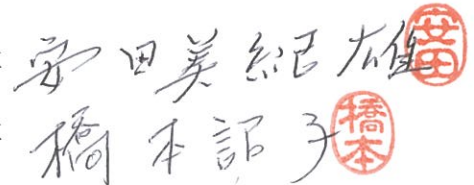 安田美紀雄 安田
橋本詔子 橋本